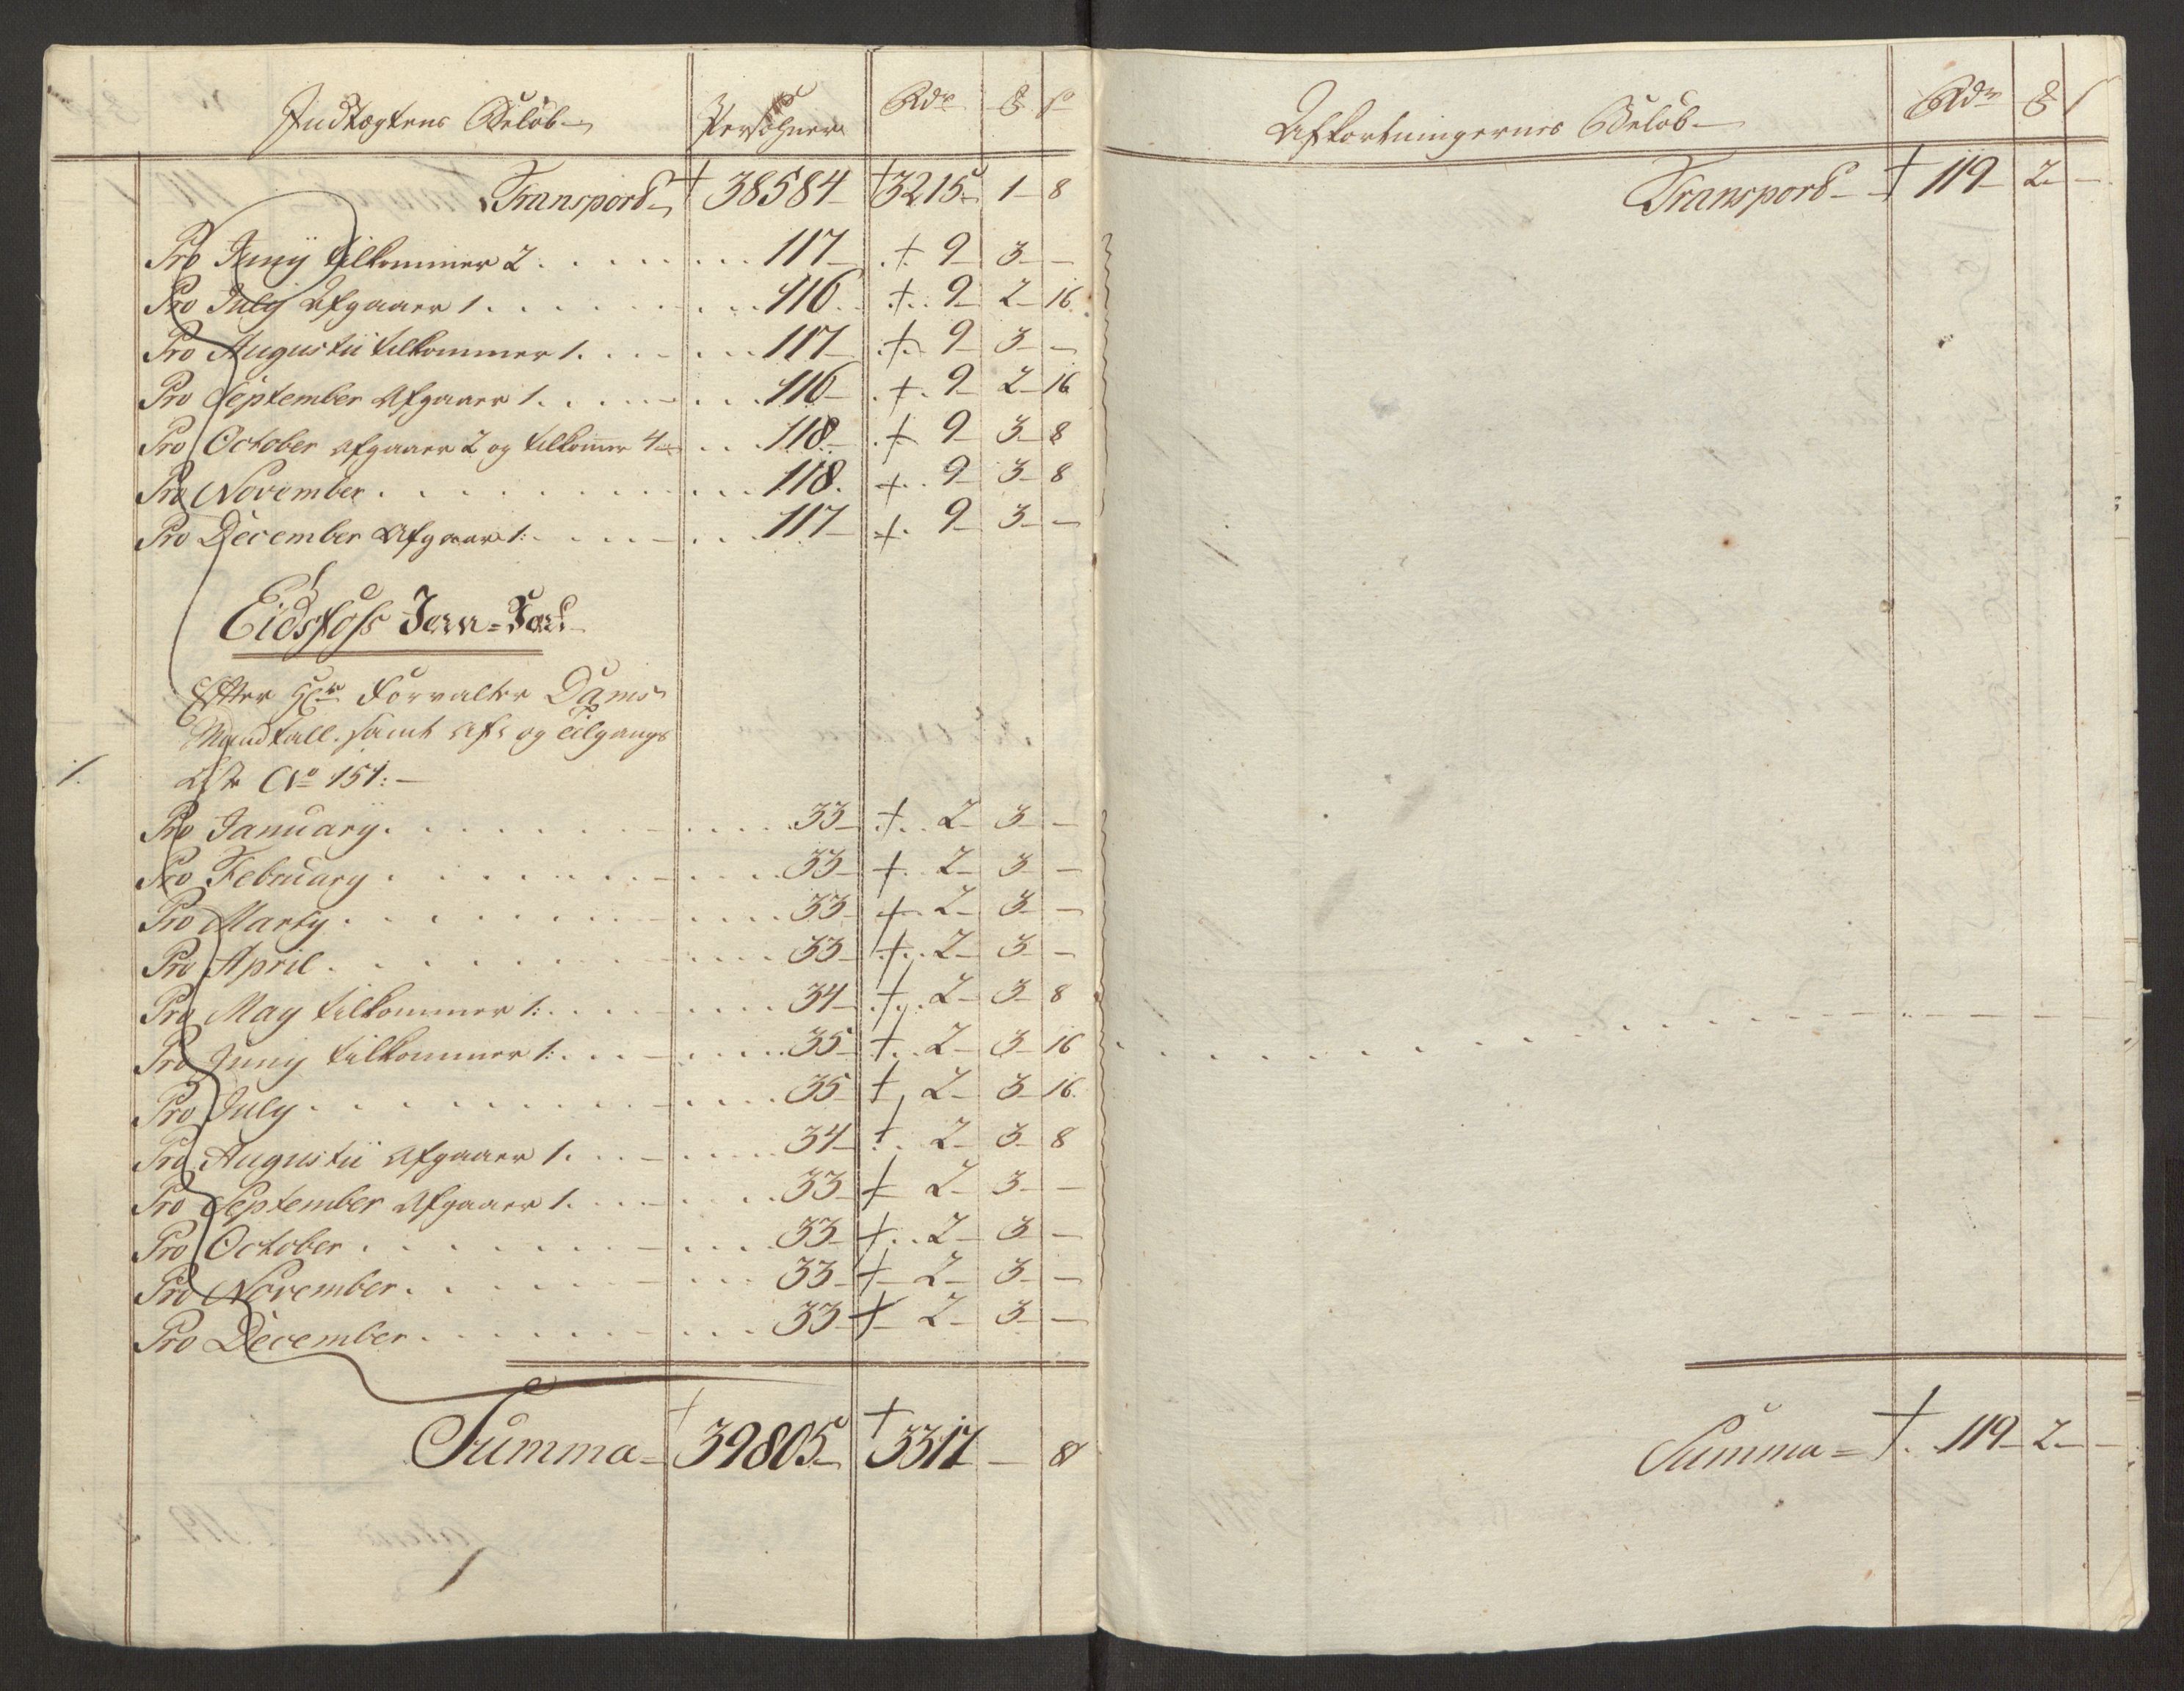 Indtægtens Beløb Persohner Rdr ß
Transport 38584 3215 1 8
Pro Junÿ tilkommer 2 117 9 3 -
Pro July Afgaaer 1 116 9 2 16
Pro Augustii tilkommer 1. 117 9 3 -
Pro September Afgaaer 1. 116 9 2 16
Pro October Afgaaer 2 og tilkommer 4 118 9 3 8
Pro November 118 9 3 8
Pro December Afgaaer 1: 117 9 3 -
Eidsfoss Jern-Værk
Efter Hr Forvalter Dams
Mandtall samt Af- og Tilgangs
1. Liste No 151:
Pro January 33 2 3 -
Pro February 33 2 3 -
Pro Marty 33 2 3 -
Pro April 33 2 3 -
Pro May tilkommer 1: 34 2 3 8
Pro Juny tilkommer 1: 35 2 3 16
Pro July 35 2 3 16
Pro Augustii Afgaaer 1. 34 2 3 8
Pro September Afgaaer 1. 33 2 3 -
Pro October 33 2 3 -
Pro November 33 2 3 -
Pro December 33 2 3 -
Summa 39805 3317 - 8
Afkortningernes Beløb Rdr ß
Transport 119 2 -
Summa 119 2 -